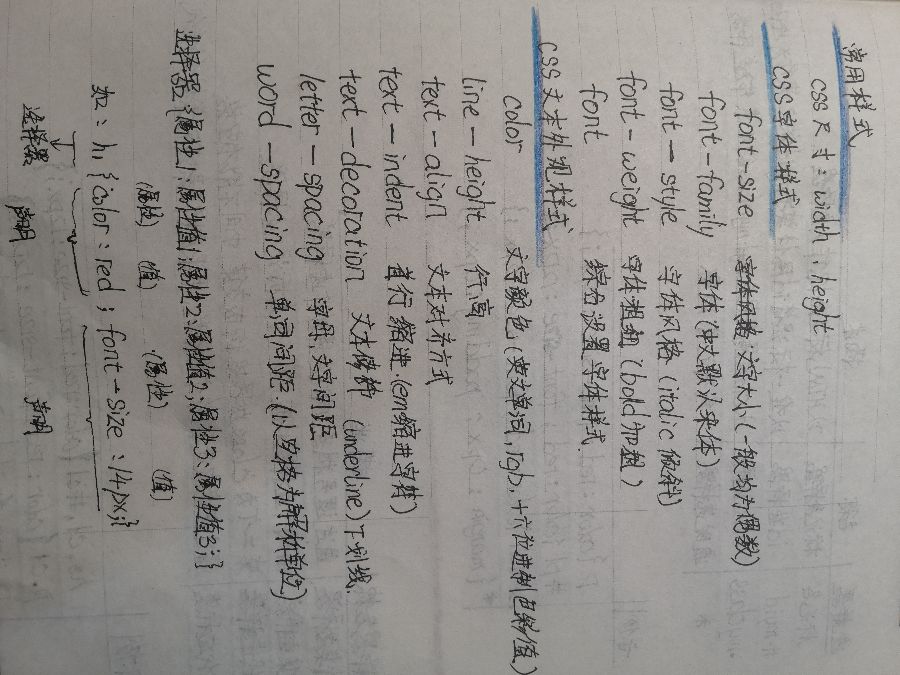 常用样式
CSS尺寸: width, height
CSS字体样式
font-size 文字大小(一般均为偶数)
font-family 字体(中文默认宋体)
font-style 字体风格(italic 倾斜)
font-weight 字体粗细(bold加粗)
font 综合设置字体样式.
CSS文本外观样式
color 文字颜色(英文单词, rgb, 十六位进制色彩值)
line-height 行高
text-align 文本对齐方式
text-indent 首行缩进(em缩进字符)
text-decoration 文本修饰(underline)下划线.
letter-spacing 字母、文字间距
word-spacing 单词间距(以空格为解析单位)
选择器{属性1:属性值1;属性2:属性值2;属性3:属性值3;}
(属性) 值 (属性) (值)
如: h1{color:red; font-size:14px;}
选择器 声明 声明